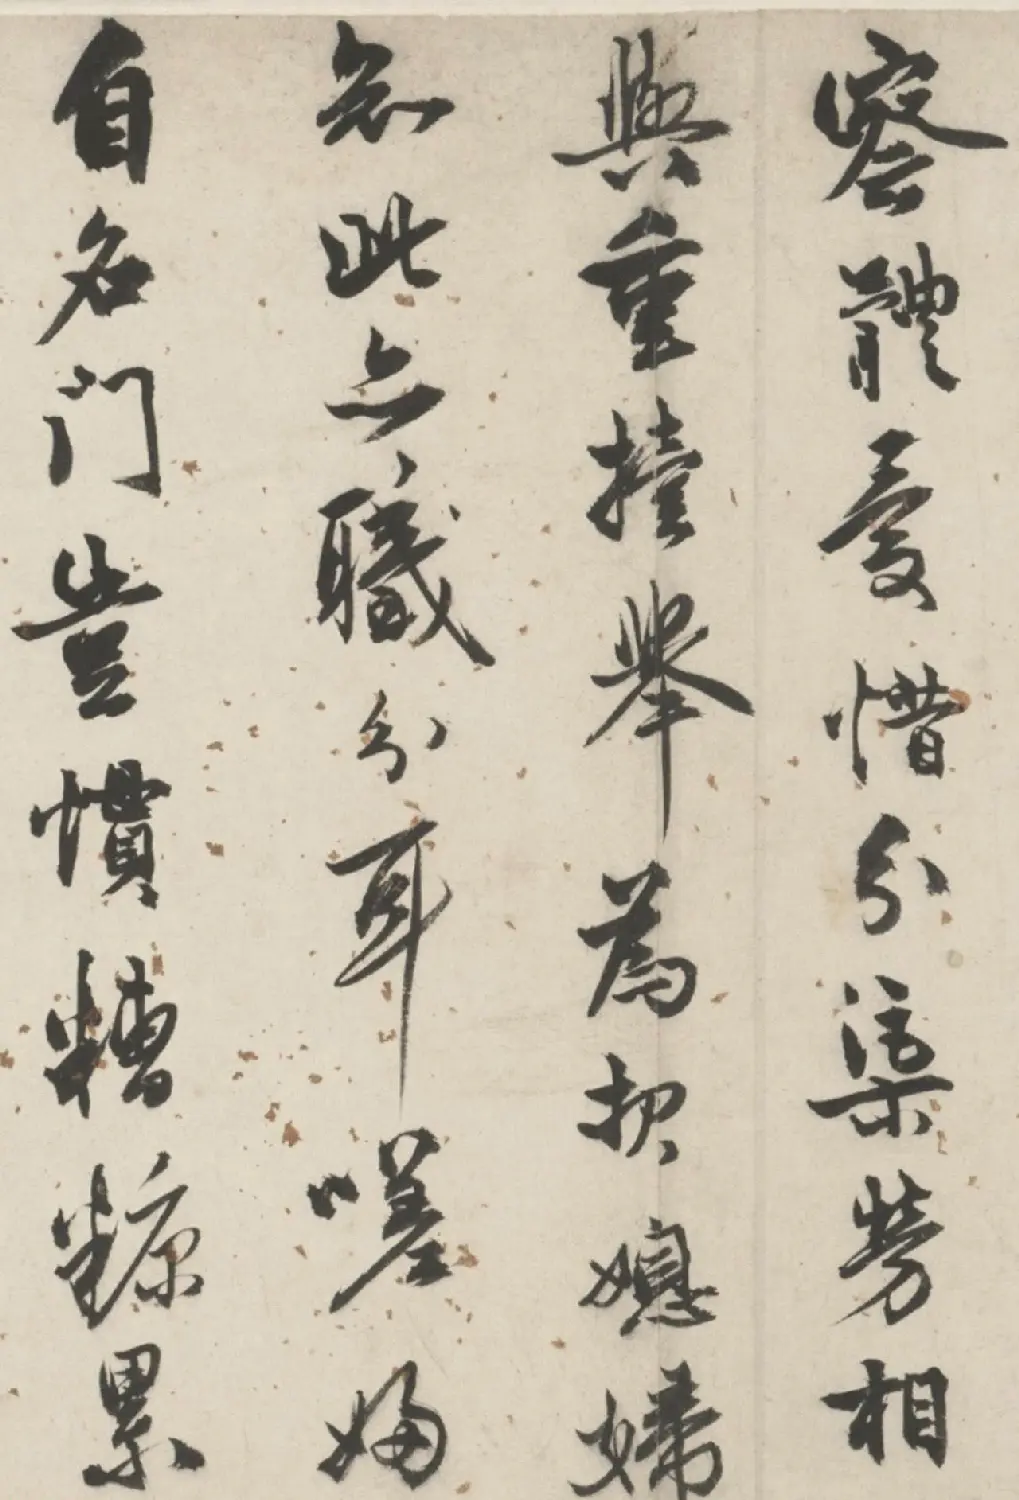 察體愛惜分渠勞相
與重擡舉為把媳婦
忽此亦職分耳嗟婦
自名門豈慣糟糠累